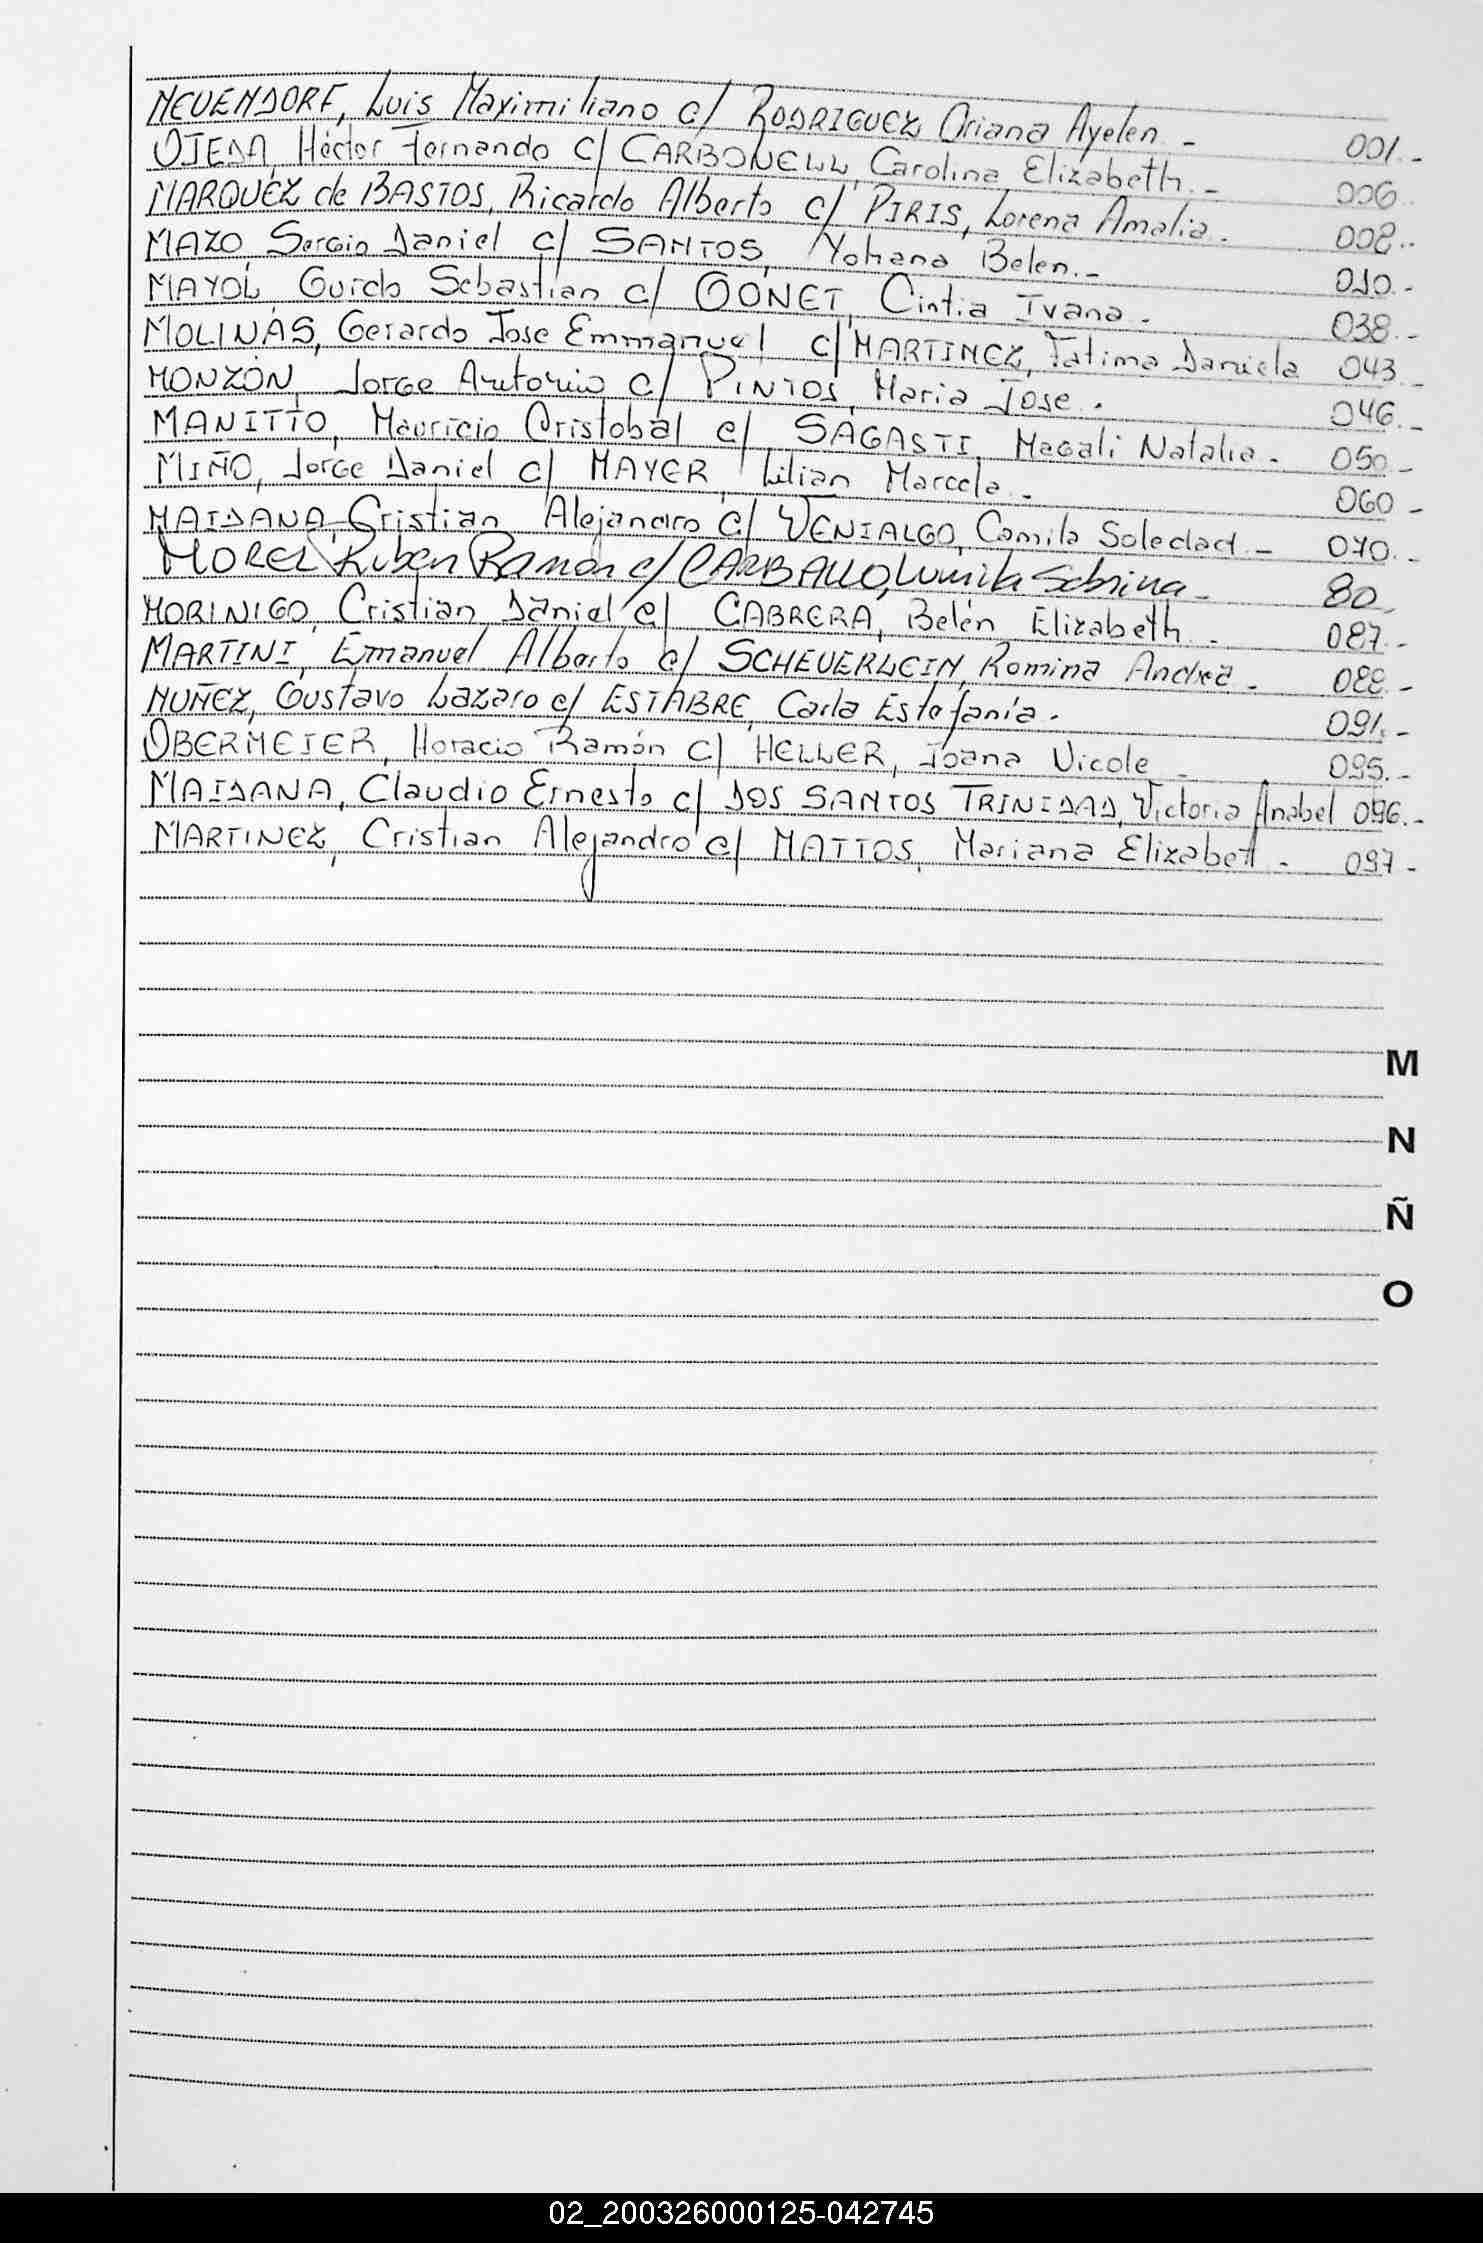 NEUENDORF, Luis Maximiliano c/ RODRIGUEZ Oriana Ayelen.- 001.-
OJEDA, Héctor Fernando c/ CARBONELL, Carolina Elizabeth.- 006.-
MARQUEZ de BASTOS, Ricardo Alberto c/ PIRIS, Lorena Amalia.- 008.-
MAZO, Sergio Daniel c/ SANTOS, Yohana Belen.- 010.-
MAYOL, Guido Sebastian c/ GONET, Cintia Ivana.- 038.-
MOLINAS, Gerardo Jose Emmanuel c/ MARTINEZ, Fatima Daniela 043.-
MONZÓN, Jorge Antonio c/ PINTOS, Maria Jose.- 046.-
MANITTO, Mauricio Cristobal c/ SAGASTI, Magali Natalia.- 050.-
MIÑO, Jorge Daniel c/ MAYER, Lilian Marcela.- 060.-
MAIDANA, Cristian Alejandro c/ VENIALGO, Camila Soledad.- 070.-
MOREL, Ruben Ramon c/ CARBALLO, Lumila Sabrina.- 80.-
MORINIGO, Cristian Daniel c/ CABRERA, Belén Elizabeth.- 087.-
MARTINI, Emanuel Alberto c/ SCHEUERLEIN, Romina Andrea.- 088.-
NUÑEZ, Gustavo Lazaro c/ ESTABRE, Carla Estefanía.- 091.-
OBERMEIER, Horacio Ramón c/ HELLER, Joana Nicole.- 095.-
MAIDANA, Claudio Ernesto c/ DOS SANTOS TRINIDAD, Victoria Anabel 096.-
MARTINEZ, Cristian Alejandro c/ MATTOS, Mariana Elizabet.- 097.-
M
N
Ñ
O
02_200326000125-042745